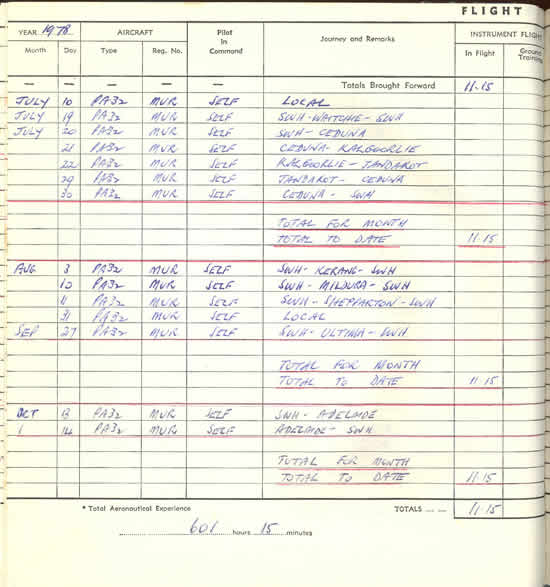 FLIGHT
YEAR 1978 AIRCRAFT Pilot In Command Journey and Remarks INSTRUMENT FLIGH
Month Day Type Reg. No. In Flight Ground Training
— — — — — Totals Brought Forward 11·15
JULY 10 PA32 MUR SELF LOCAL
JULY 19 PA32 MUR SELF SWH-WAITCHIE-SWH
JULY 20 PA32 MUR SELF SWH-CEDUNA
21 PA32 MUR SELF CEDUNA-KALGOORLIE
22 PA32 MUR SELF KALGOORLIE-JANDAKOT
29 PA32 MUR SELF JANDAKOT-CEDUNA
30 PA32 MUR SELF CEDUNA-SWH
TOTAL FOR MONTH
TOTAL TO DATE 11·15
AUG 3 PA32 MUR SELF SWH-KERANG-SWH
10 PA32 MUR SELF SWH-MILDURA-SWH
11 PA32 MUR SELF SWH-SHEPPARTON-SWH
31 PA32 MUR SELF LOCAL
SEP 27 PA32 MUR SELF SWH-ULTIMA-SWH
TOTAL FOR MONTH
TOTAL TO DATE 11·15
OCT 13 PA32 MUR SELF SWH-ADELAIDE
14 PA32 MUR SELF ADELAIDE-SWH
TOTAL FOR MONTH
TOTAL TO DATE 11·15
* Total Aeronautical Experience TOTALS 11·15
601 hours 15 minutes